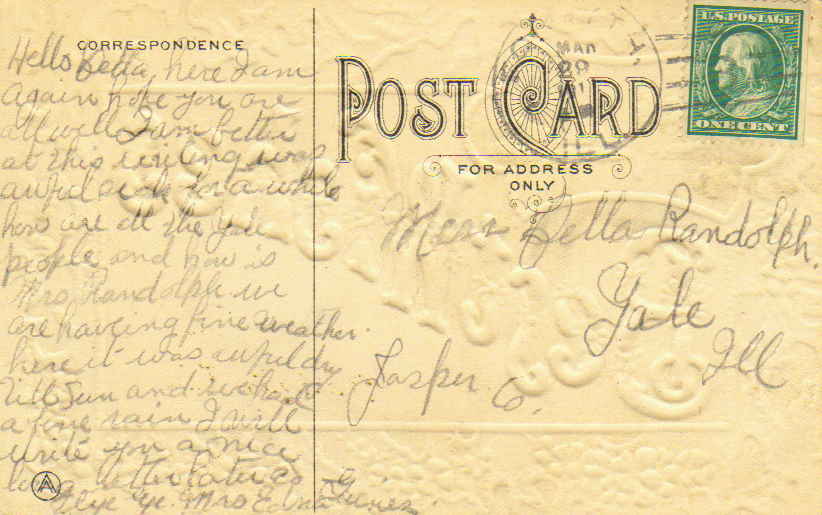 CORRESPONDENCE
Hello Bella, here I am
again hope you are
all well I am better
at this writing was
awful sick for a while
how are all the Yale
people and how is
Mrs Randolph we
are having fine weather
here it was awful dry
till Sun and we had
a fine rain I will
write you a nice
long letter later
Bye Ye. Mrs Edna
POST CARD
FOR ADDRESS
ONLY
MAR
29
ILL.
U.S. POSTAGE
ONE CENT
Miss Bella Randolph.
Yale
Jasper Co. Ill
A